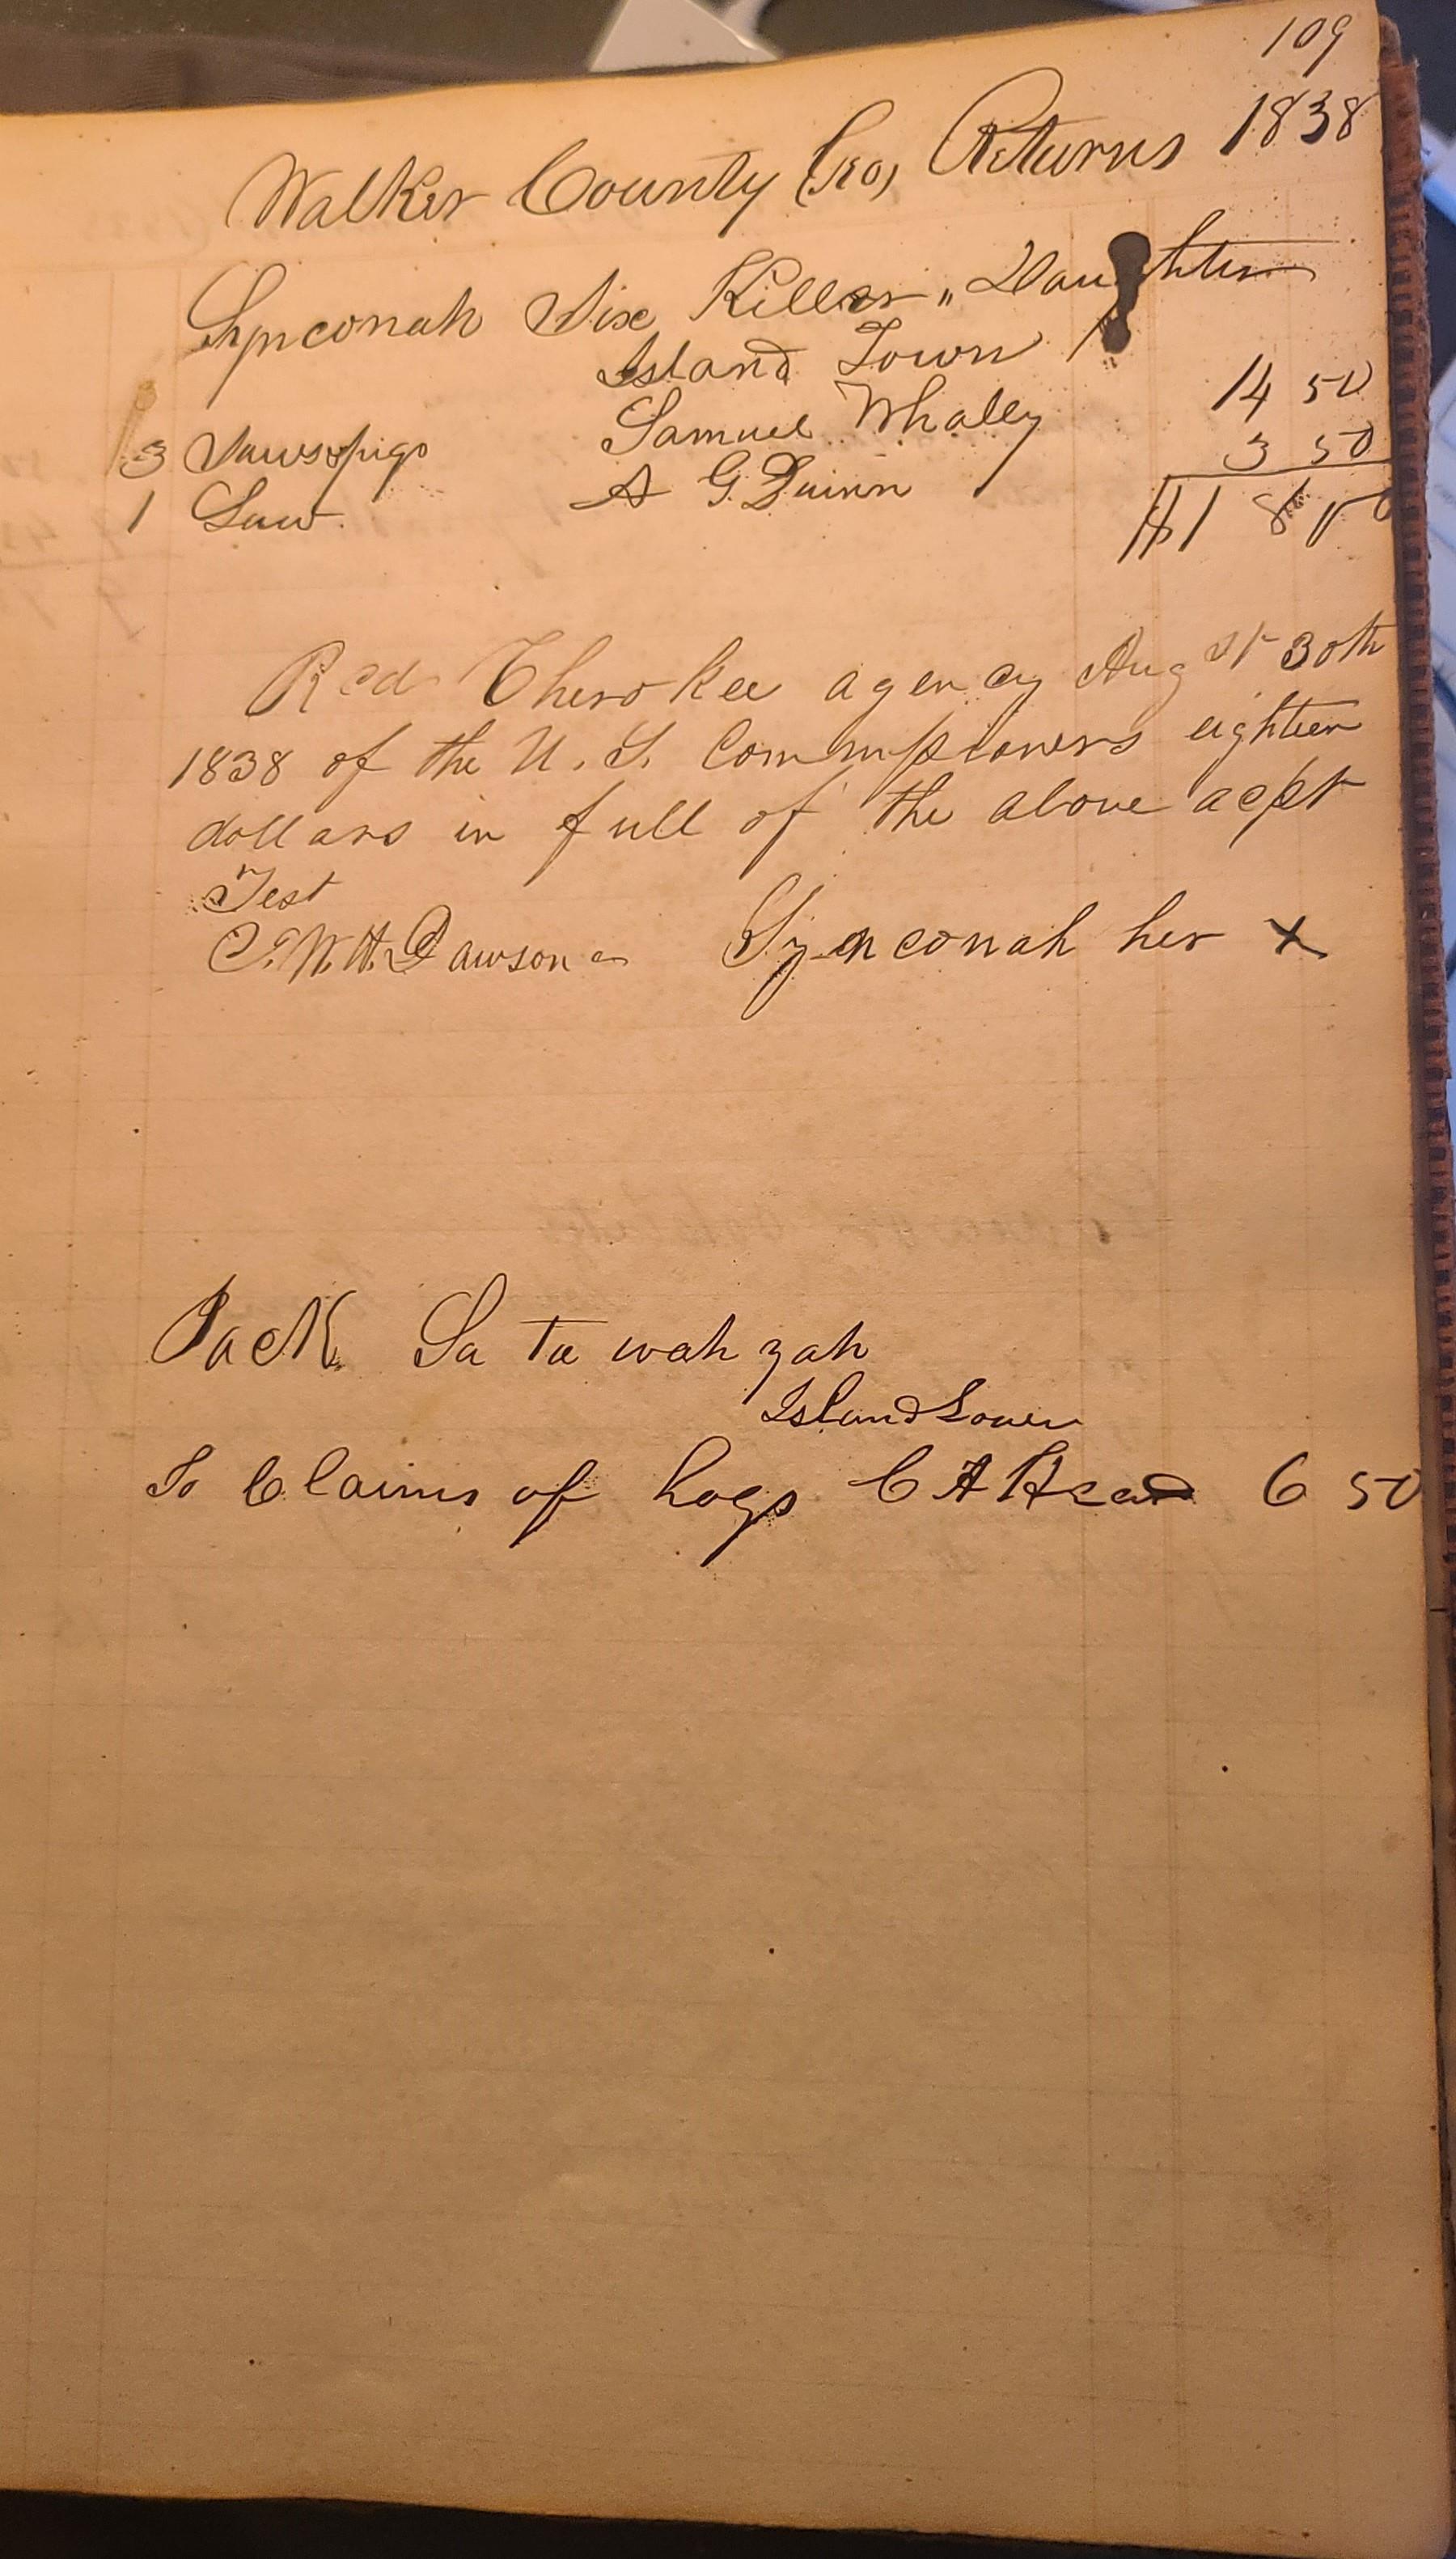 109
Walker County (Geo) Returns 1838
Synconah Six Killer " Daughter
Island Town
3 Saws & pigs Samuel Whaley 14 50
1 Saw. A G Quinn 3 50
$18 00
Recd Cherokee agency Augst 30th
1838 of the U. S. Commissioners eighteen
dollars in full of the above acpt
Test
W. H. Dawson Synconah her x
Jack Sa ta wah zah
Island Town
To Claims of hogs C A Head 6 50